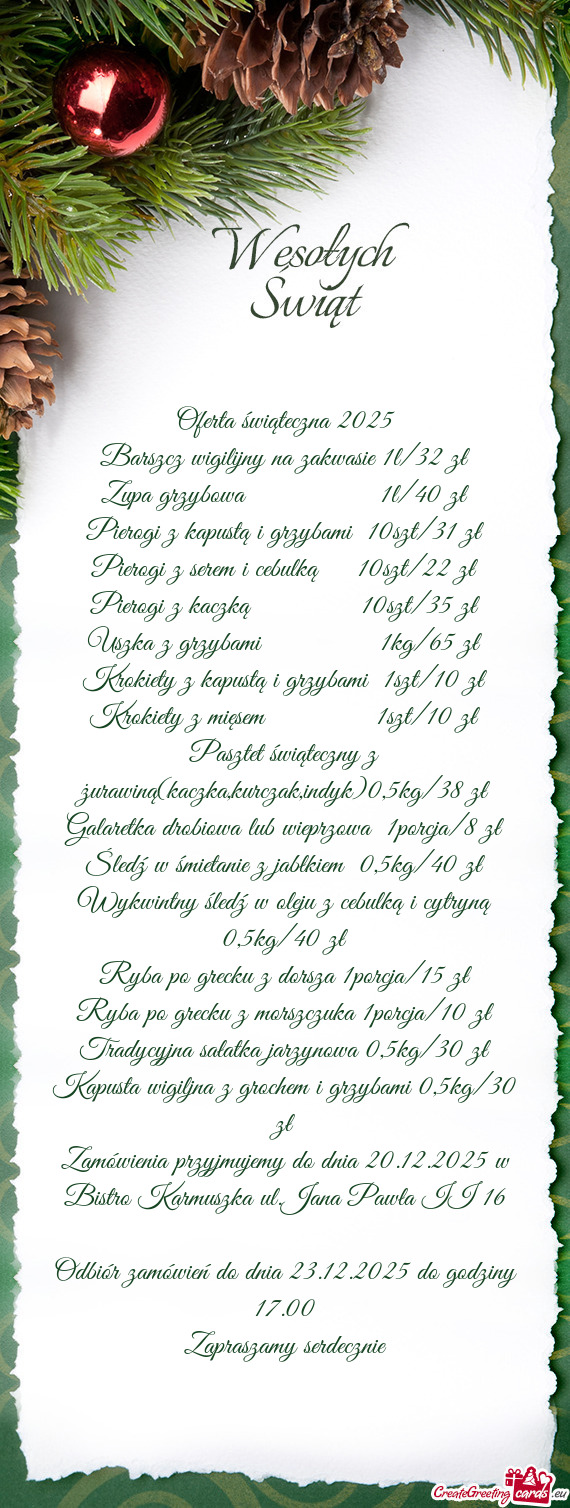 Wesołych
Świąt
Oferta świąteczna 2025
Barszcz wigilijny na zakwasie 1l/32 zł
Zupa grzybowa 1l/40 zł
Pierogi z kapustą i grzybami 10szt/31 zł
Pierogi z serem i cebulką 10szt/22 zł
Pierogi z kaczką 10szt/35 zł
Uszka z grzybami 1kg/65 zł
Krokiety z kapustą i grzybami 1szt/10 zł
Krokiety z mięsem 1szt/10 zł
Pasztet świąteczny z
żurawiną(kaczka,kurczak,indyk)0,5kg/38 zł
Galaretka drobiowa lub wieprzowa 1porcja/8 zł
Śledź w śmietanie z jabłkiem 0,5kg/40 zł
Wykwintny śledź w oleju z cebulką i cytryną
0,5kg/40 zł
Ryba po grecku z dorsza 1porcja/15 zł
Ryba po grecku z morszczuka 1porcja/10 zł
Tradycyjna sałatka jarzynowa 0,5kg/30 zł
Kapusta wigiljna z grochem i grzybami 0,5kg/30
zł
Zamówienia przyjmujemy do dnia 20.12.2025 w
Bistro Karmuszka ul.Jana Pawła II 16
Odbiór zamówień do dnia 23.12.2025 do godziny
17.00
Zapraszamy serdecznie
CreateGreeting cards .eu